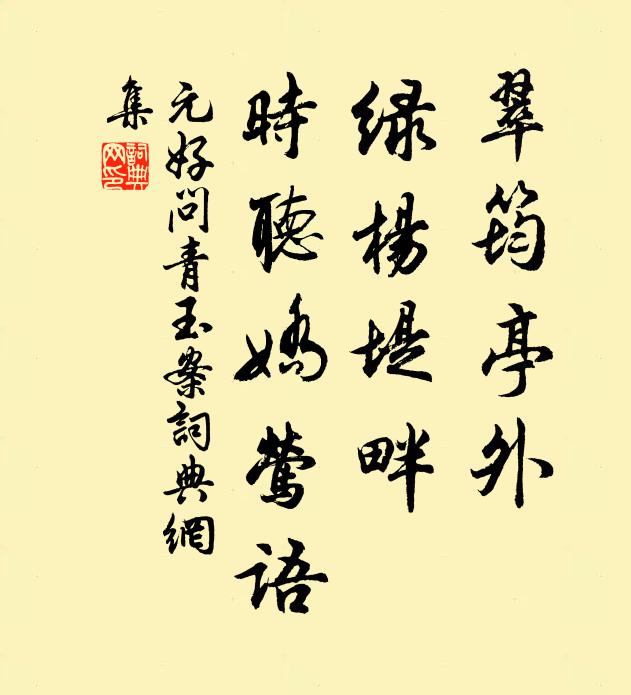 翠筠亭外
绿楊堤畔
時聽嬌鶯語
元好問青玉案詞典網
集
詞典網印